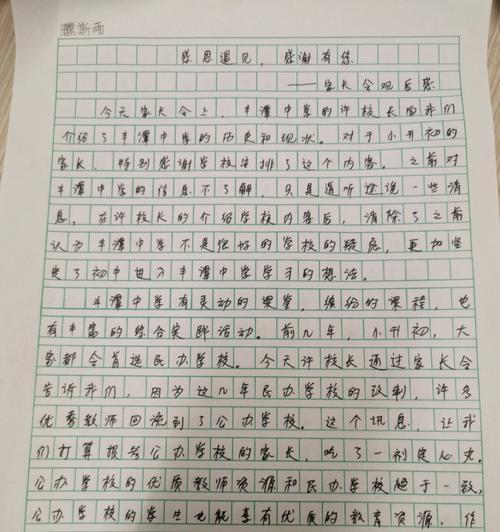 濮斯雨
感恩遇见，感谢有您
——家长会观后感
今天家长会上，丰潭中学的许校长向我们
介绍了丰潭中学的历史和现状。对于小升初的
家长，特别感谢学校安排了这个内容。之前对
丰潭中学的信息不了解，只是道听途说一些消
息，在许校长的介绍学校内容后，消除了之前
认为丰潭中学不是很好的学校的疑虑，更加坚
定了初中进入丰潭中学学习的想法。
丰潭中学有灵动的课堂，缤纷的课程，也
有丰富的综合实践活动。前几年，小升初，大
家都会首选民办学校。今天许校长通过家长会
告诉我们，因为这几年民办学校的改制，许多
优秀教师回流到了公办学校。这个讯息，让我
们打算报考公办学校的家长，吃了一剂定心丸。
公办学校的优质教师资源和民办学校趋于一致，
公办学校的学生也能享有优质的教育资源，作